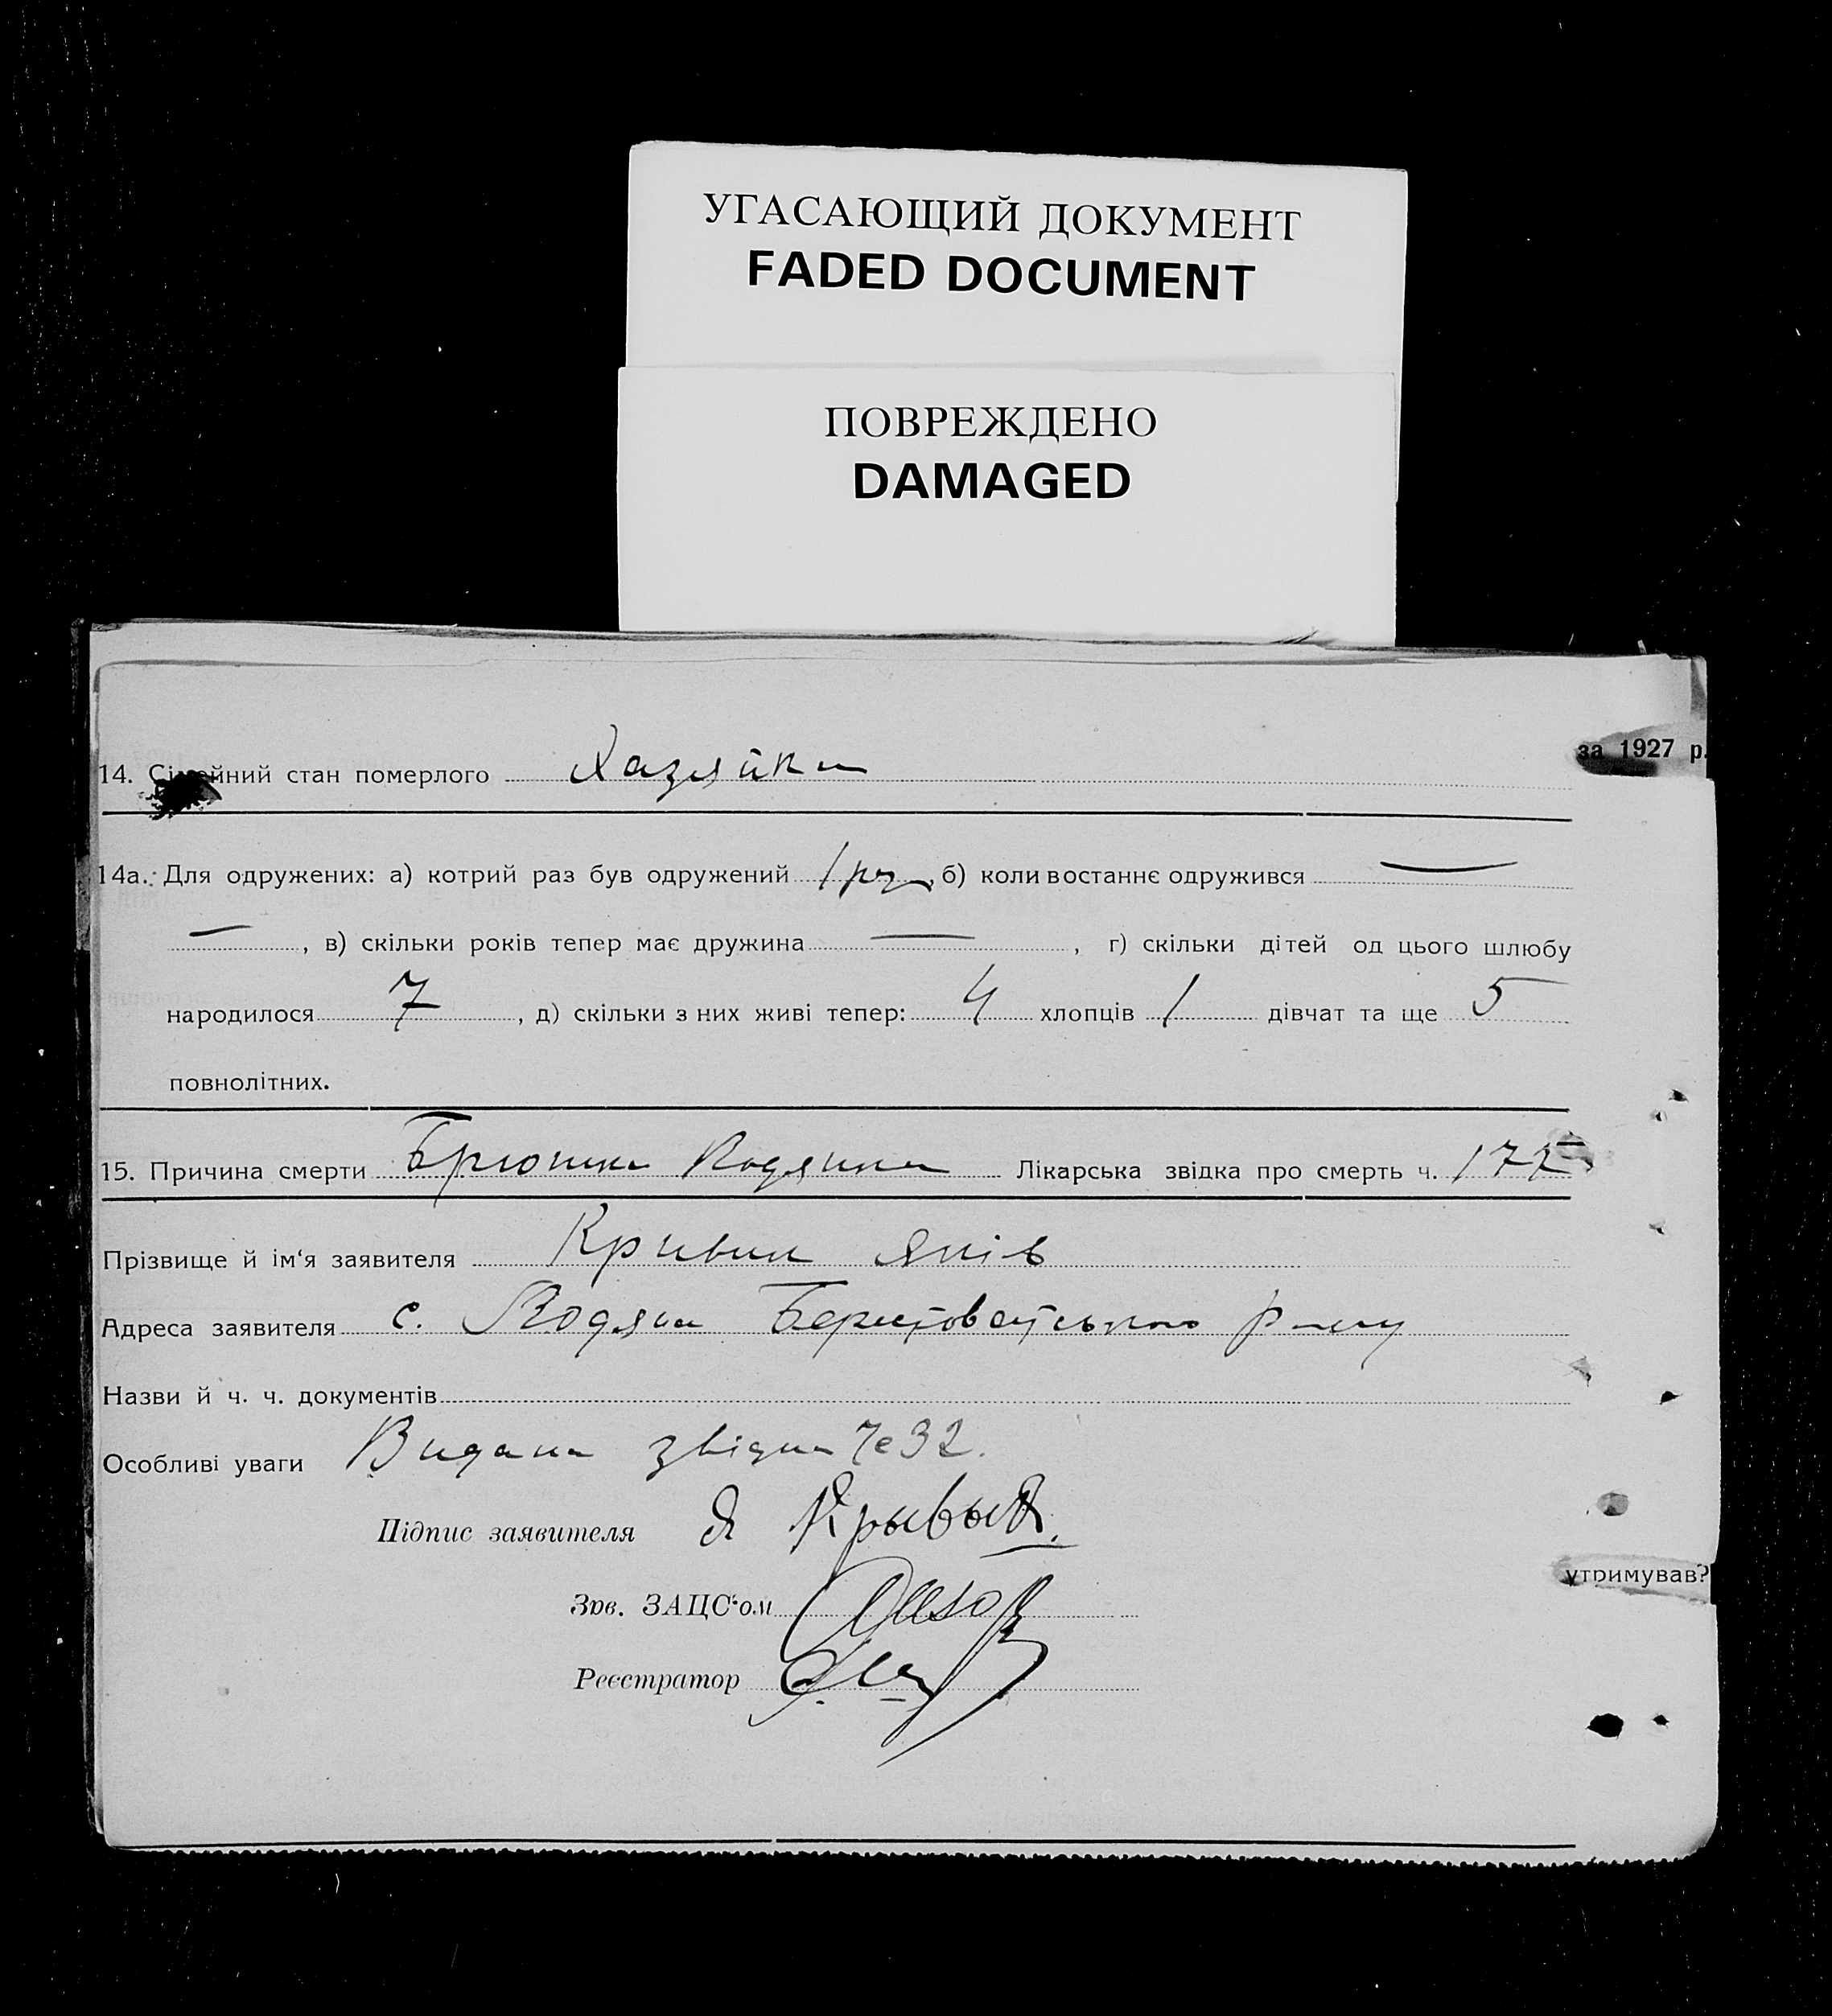 УГАСАЮЩИЙ ДОКУМЕНТ
FADED DOCUMENT
ПОВРЕЖДЕНО
DAMAGED
за 1927 р.
14. Сімейний стан померлого Хазяйка
14а. Для одружених: а) котрий раз був одружений 1 раз, б) коли востаннє одружився —
—, в) скільки років тепер має дружина —, г) скільки дітей од цього шлюбу
народилося 7, д) скільки з них живі тепер: 4 хлопців 1 дівчат та ще 5
повнолітних.
15. Причина смерти Брюшна Водянка Лікарська звідка про смерть ч. 177
Прізвище й ім‘я заявителя Кривий Яків
Адреса заявителя с. Водяна
Назви й ч. ч. документів
Особливі уваги Видана звідка № 32.
Підпис заявителя Я Крывый.
утримував?
Зав. ЗАЦС‘ом
Реєстратор